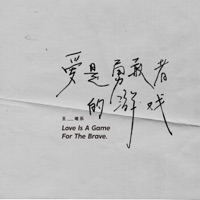 爱是勇敢者
的游戏
Love Is A Game
For The Brave.